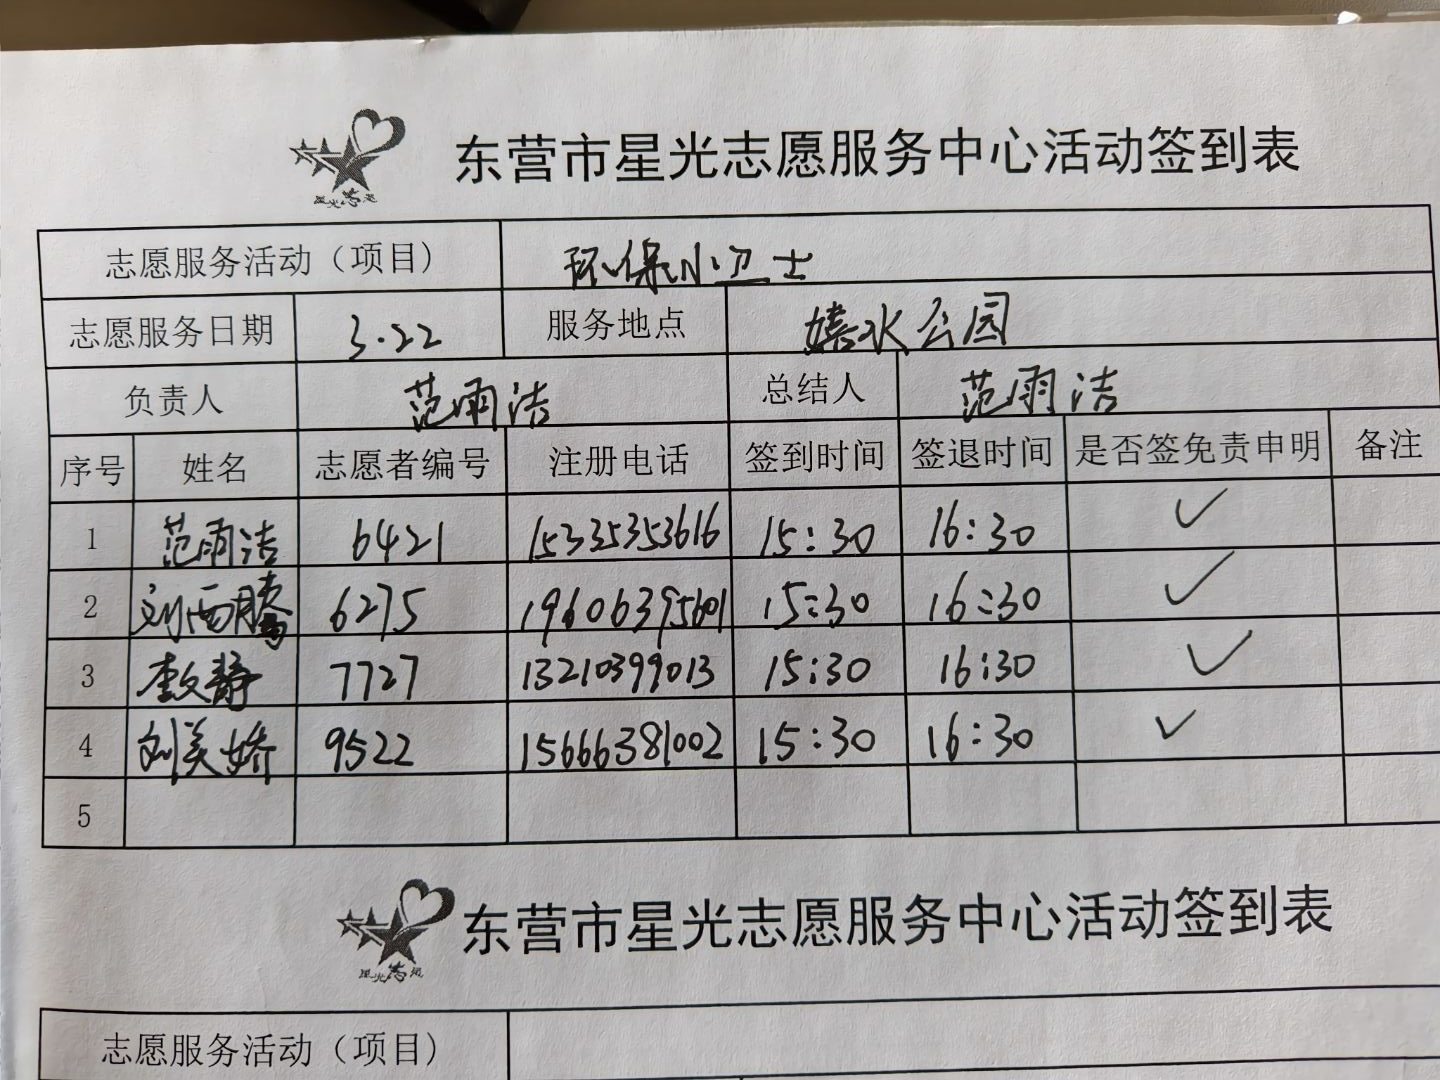 东营市星光志愿服务中心活动签到表
志愿服务活动（项目） 环保小卫士
志愿服务日期 3.22 服务地点 嬉水公园
负责人 范雨洁 总结人 范雨洁
序号 姓名 志愿者编号 注册电话 签到时间 签退时间 是否签免责申明 备注
1 范雨洁 6421 15335353616 15:30 16:30 ✓
2 刘西腾 6275 19606395601 15:30 16:30 ✓
3 李文静 7727 13210399013 15:30 16:30 ✓
4 刘美娇 9522 15666381002 15:30 16:30 ✓
5
东营市星光志愿服务中心活动签到表
志愿服务活动（项目）